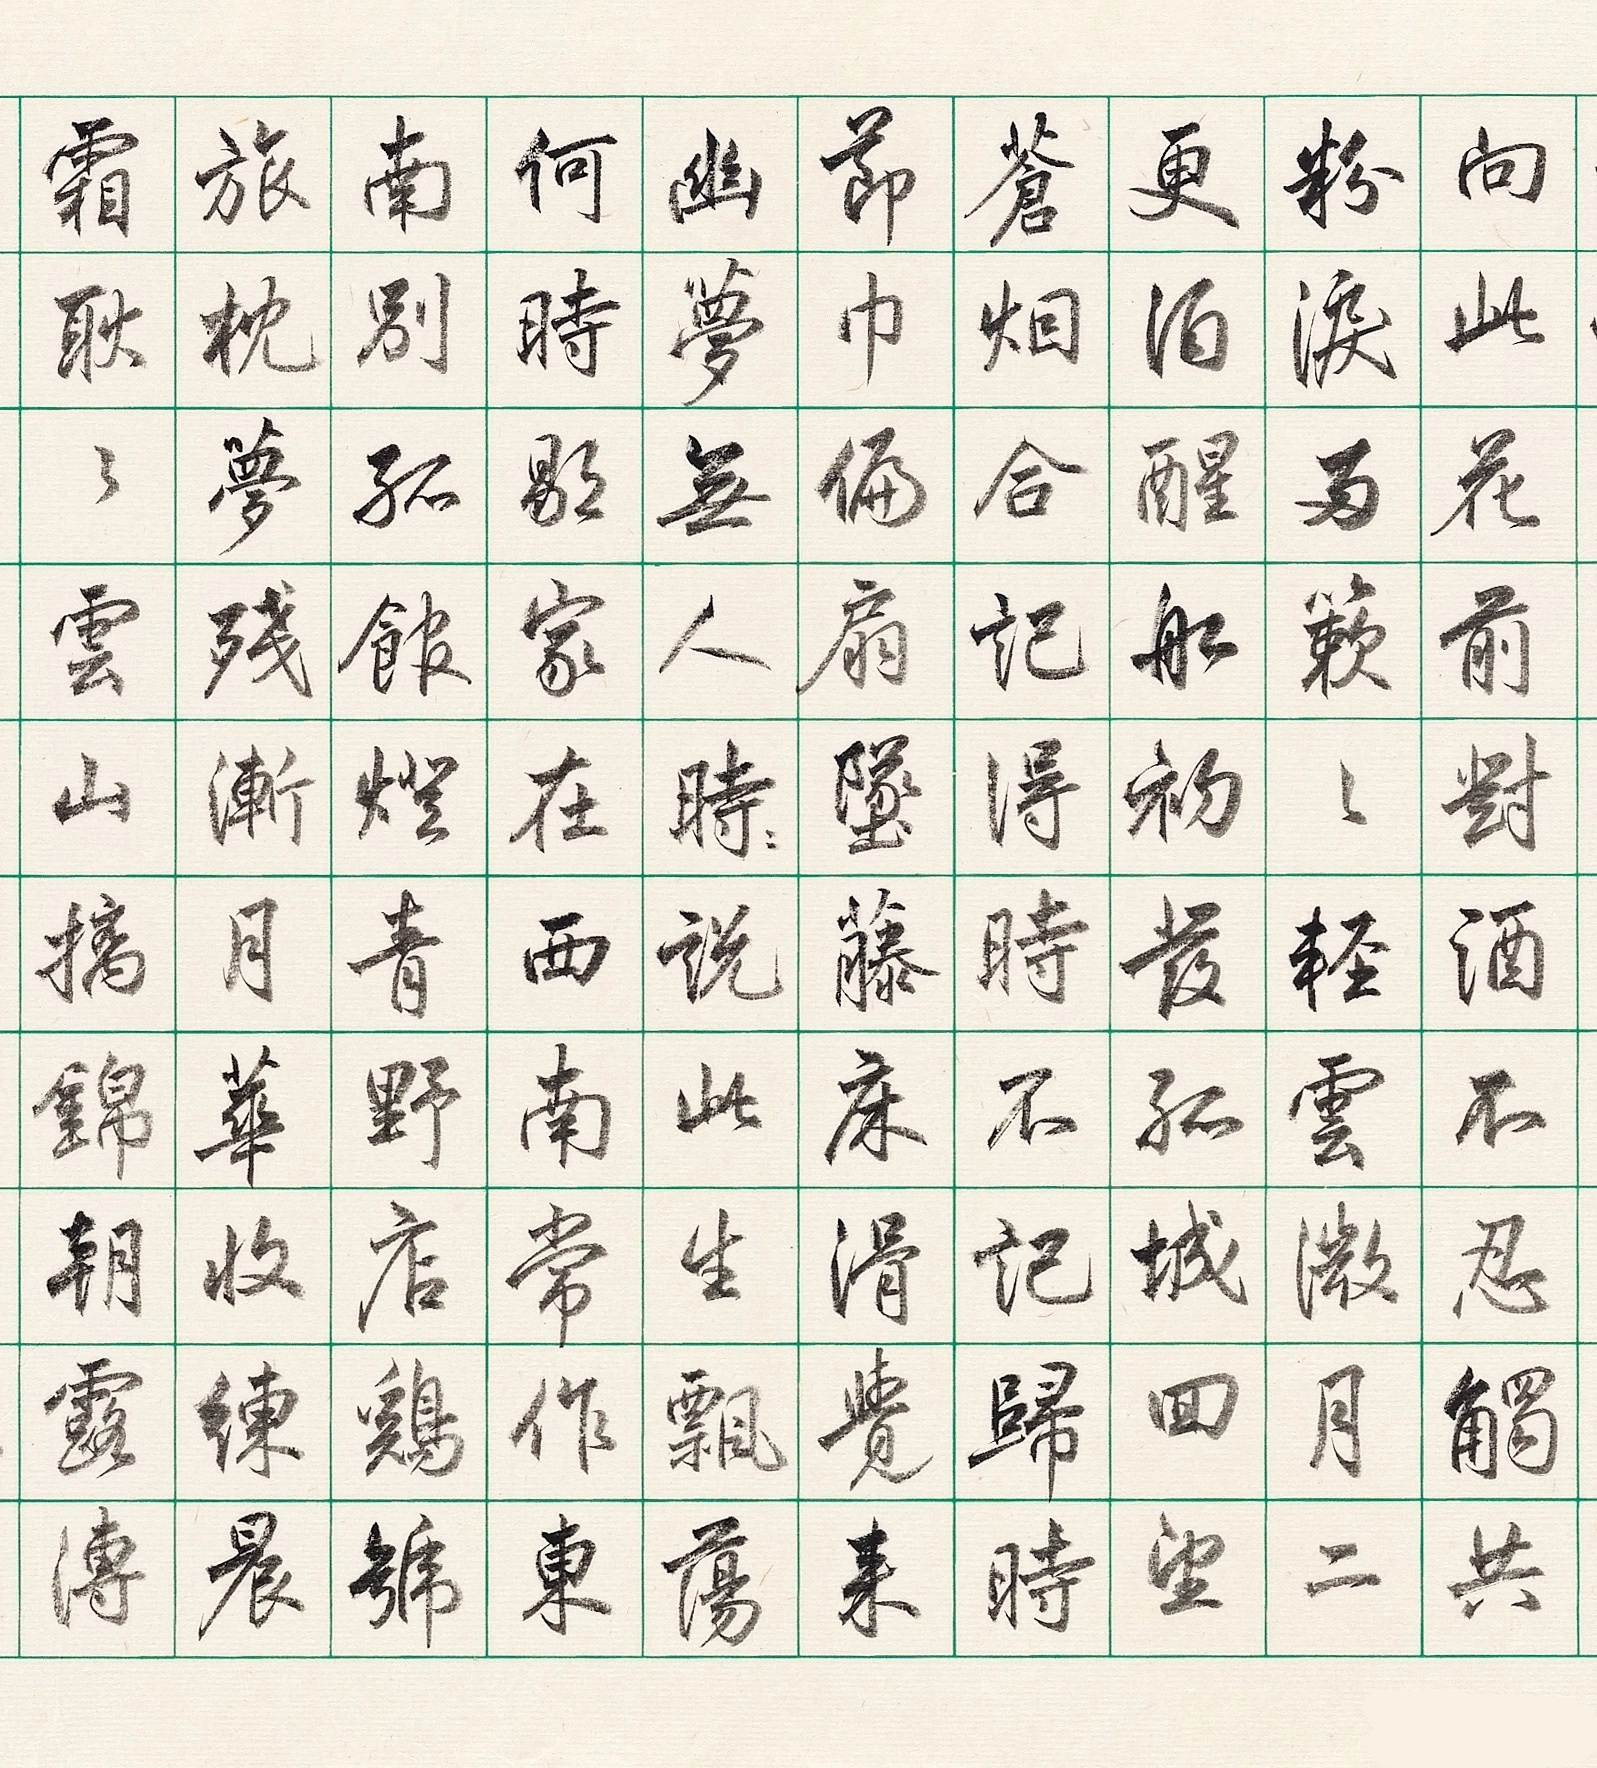 向此花前對酒不忍觸共
粉淚兩簌〻輕雲微月二
更泊醒船初發孤城回望
蒼烟合記得時不記歸時
節巾偏扇墜藤床滑覺来
幽夢無人時〻說此生飄蕩
何時歇家在西南常作東
南別孤館燈青野店鷄號
旅枕夢殘漸月華收練晨
霜耿〻雲山摛錦朝露漙